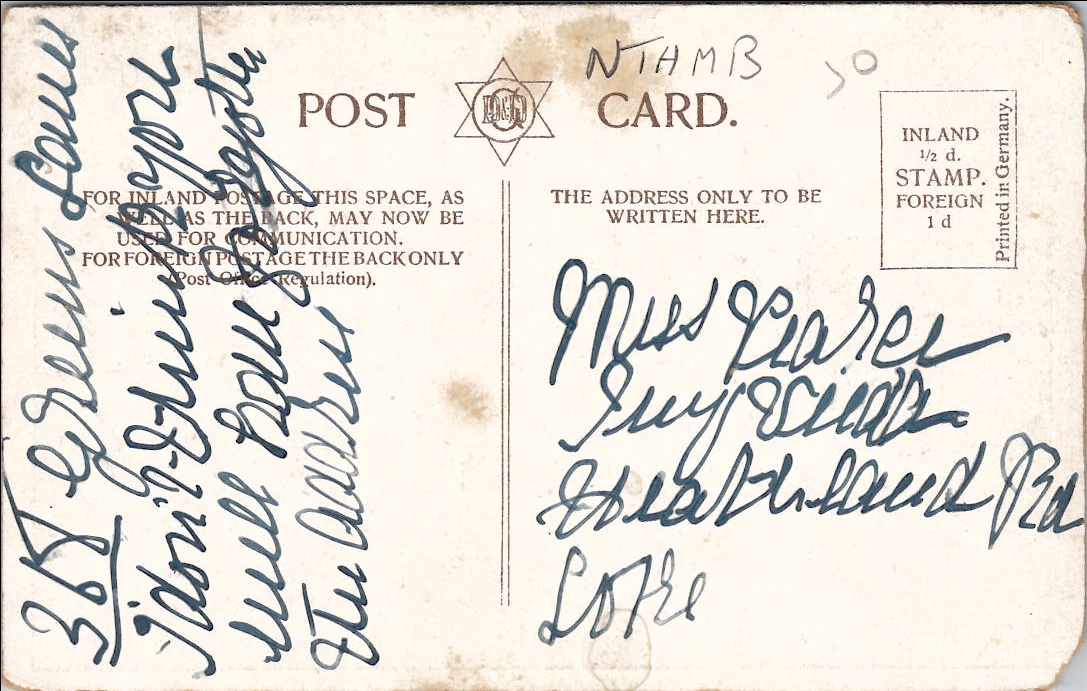 NTHMB
POST CARD.
INLAND
1/2 d.
STAMP.
FOREIGN
1 d
Printed in Germany.
FOR INLAND POSTAGE THIS SPACE, AS
WELL AS THE BACK, MAY NOW BE
USED FOR COMMUNICATION.
FOR FOREIGN POSTAGE THE BACK ONLY
(Post Office Regulation).
THE ADDRESS ONLY TO BE
WRITTEN HERE.
Miss Pearce
Ivy
Heathland Rd
Stoke
Greens Lane
I don't think
will
the address